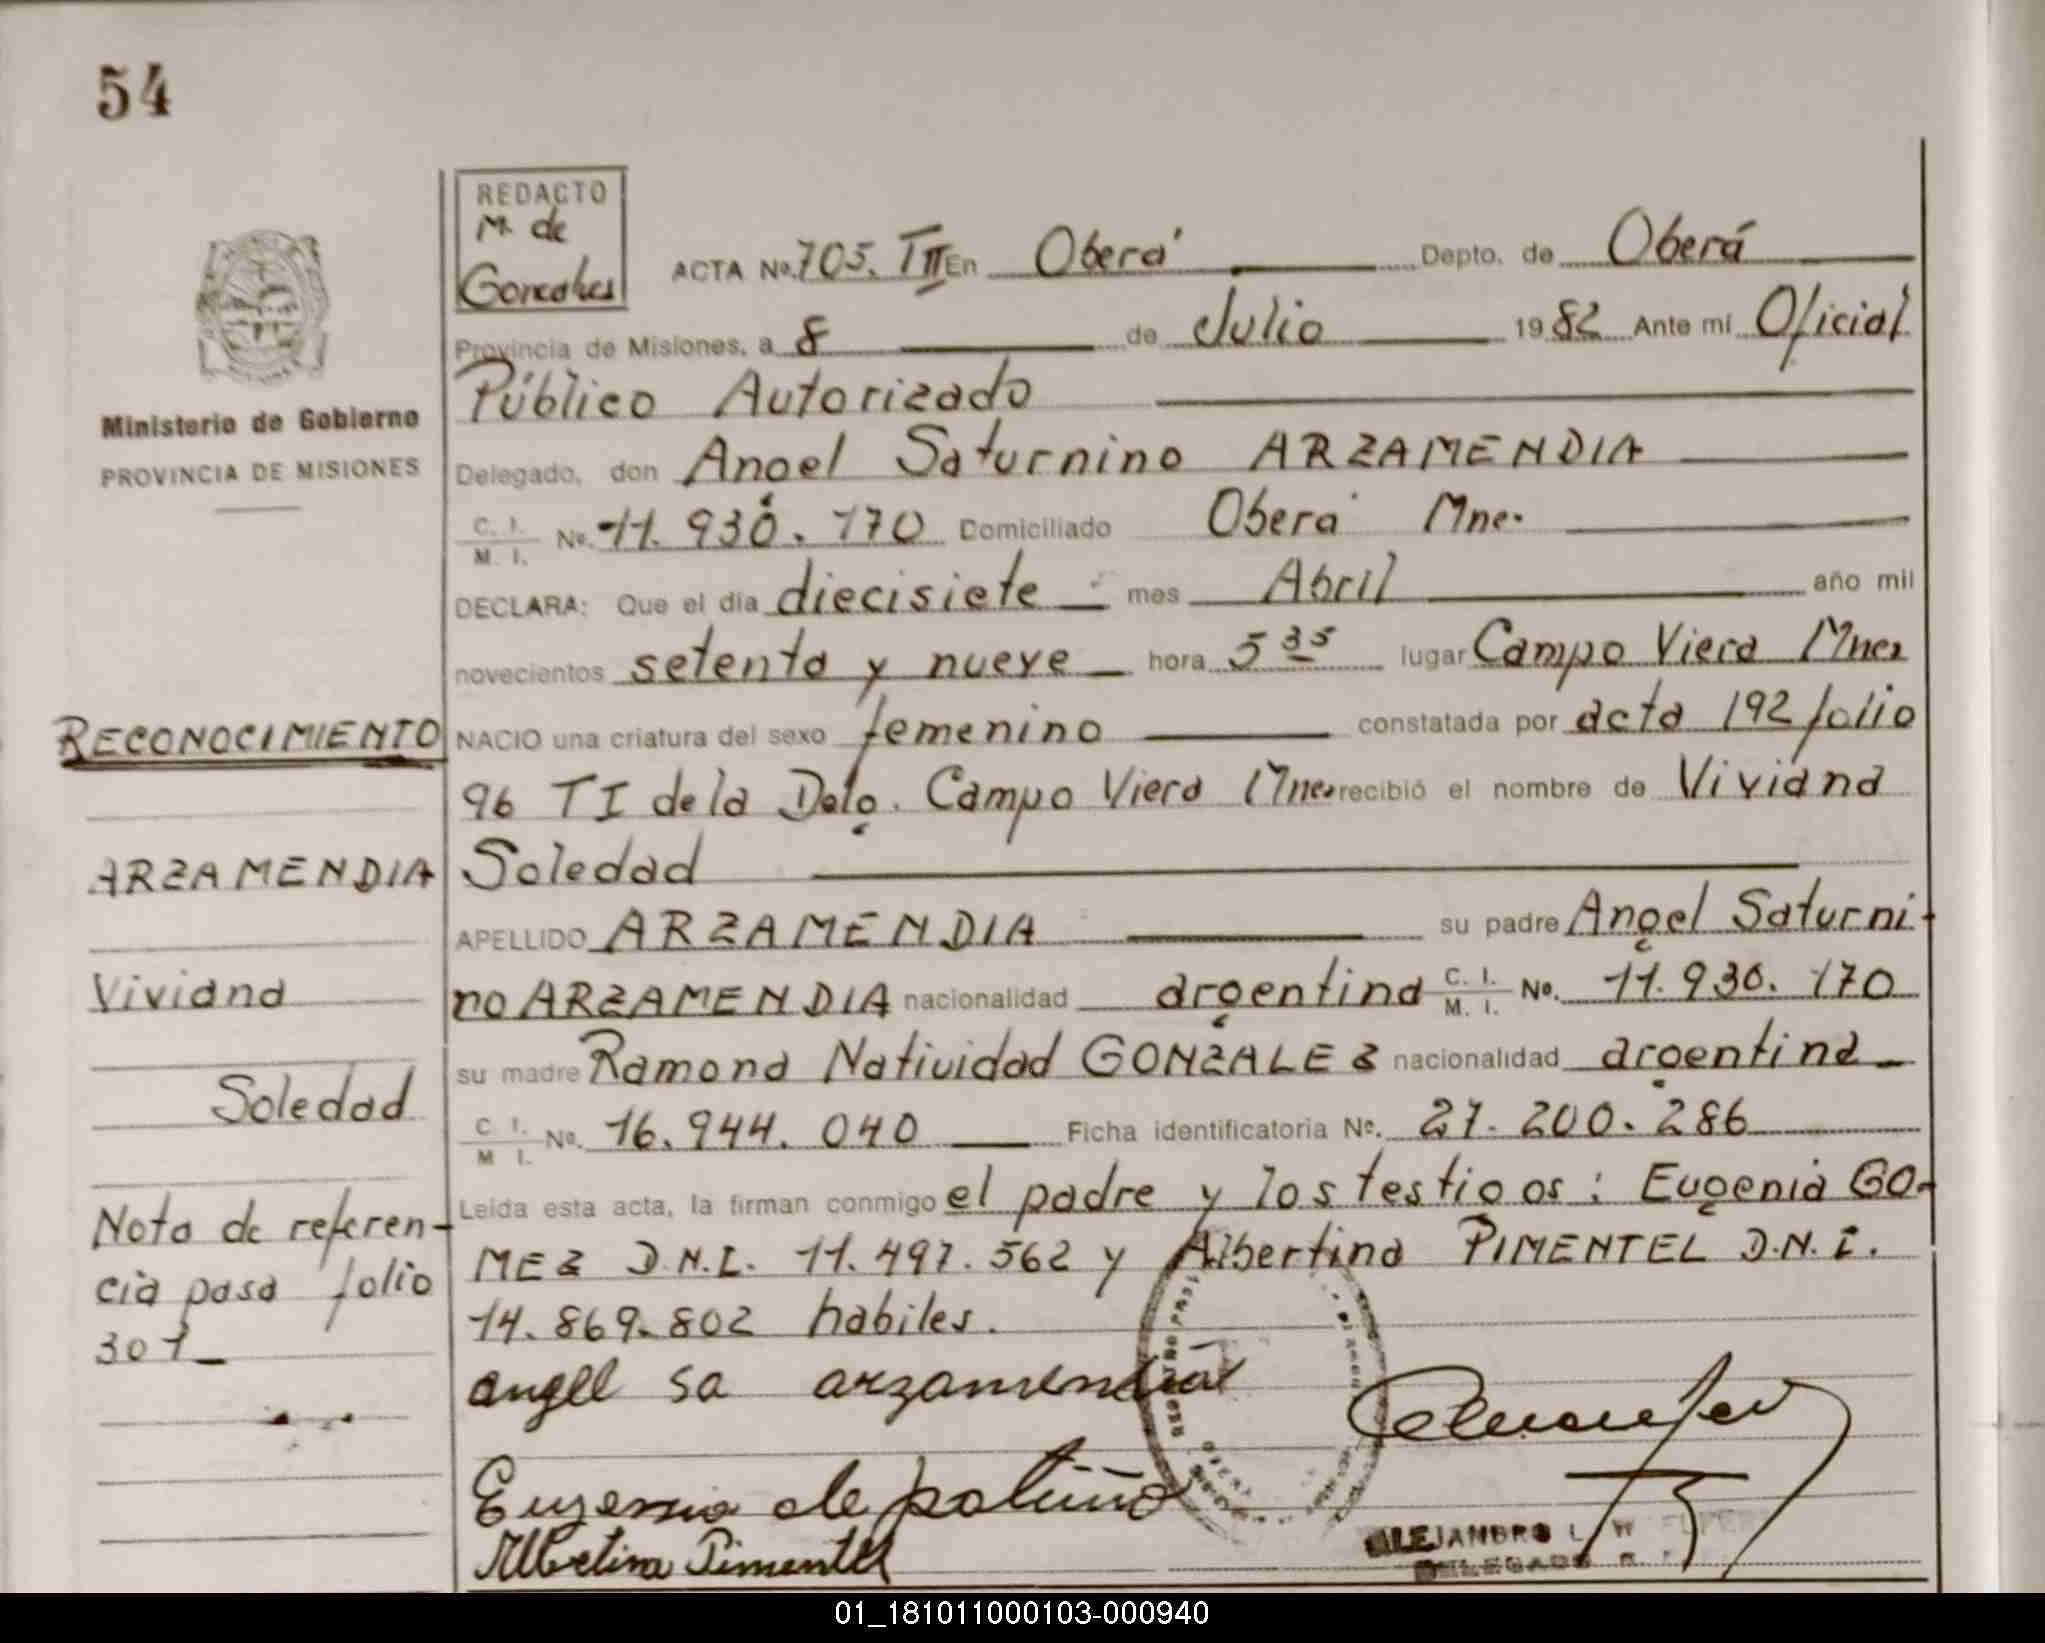 54
REDACTO
M. de
Goncalves
ACTA No. 705. TII En Oberá Depto. de Oberá
Provincia de Misiones, a 8 de Julio 1982 Ante mí Oficial
Público Autorizado
Delegado, don Angel Saturnino ARZAMENDIA
C. I. / M. I. No. 11.930.170 Domiciliado Oberá Mnes.
DECLARA: Que el día diecisiete mes Abril año mil
novecientos setenta y nueve hora 5 35 lugar Campo Viera Mnes
NACIO una criatura del sexo femenino constatada por acta 192 folio
96 TI de la Deleg. Campo Viera Mnes recibió el nombre de Viviana
Soledad
APELLIDO ARZAMENDIA su padre Angel Saturni-
no ARZAMENDIA nacionalidad argentina C. I. / M. I. No. 11.930.170
su madre Ramona Natividad GONZALEZ nacionalidad argentina
C. I. / M. I. No. 16.944.040 Ficha identificatoria No. 27.200.286
Leída esta acta, la firman conmigo el padre y los testigos: Eugenia GO-
MEZ D.N.I. 11.497.562 y Albertina PIMENTEL D.N.I.
14.869.802 habiles.
angel sa arzamendia
Eugenia de patiño
Albertina Pimentel
ALEJANDRO L. W.
DELEGADO
Ministerio de Gobierno
PROVINCIA DE MISIONES
RECONOCIMIENTO
ARZAMENDIA
Viviana
Soledad
Nota de referen-
cia pasa folio
301
01_181011000103-000940